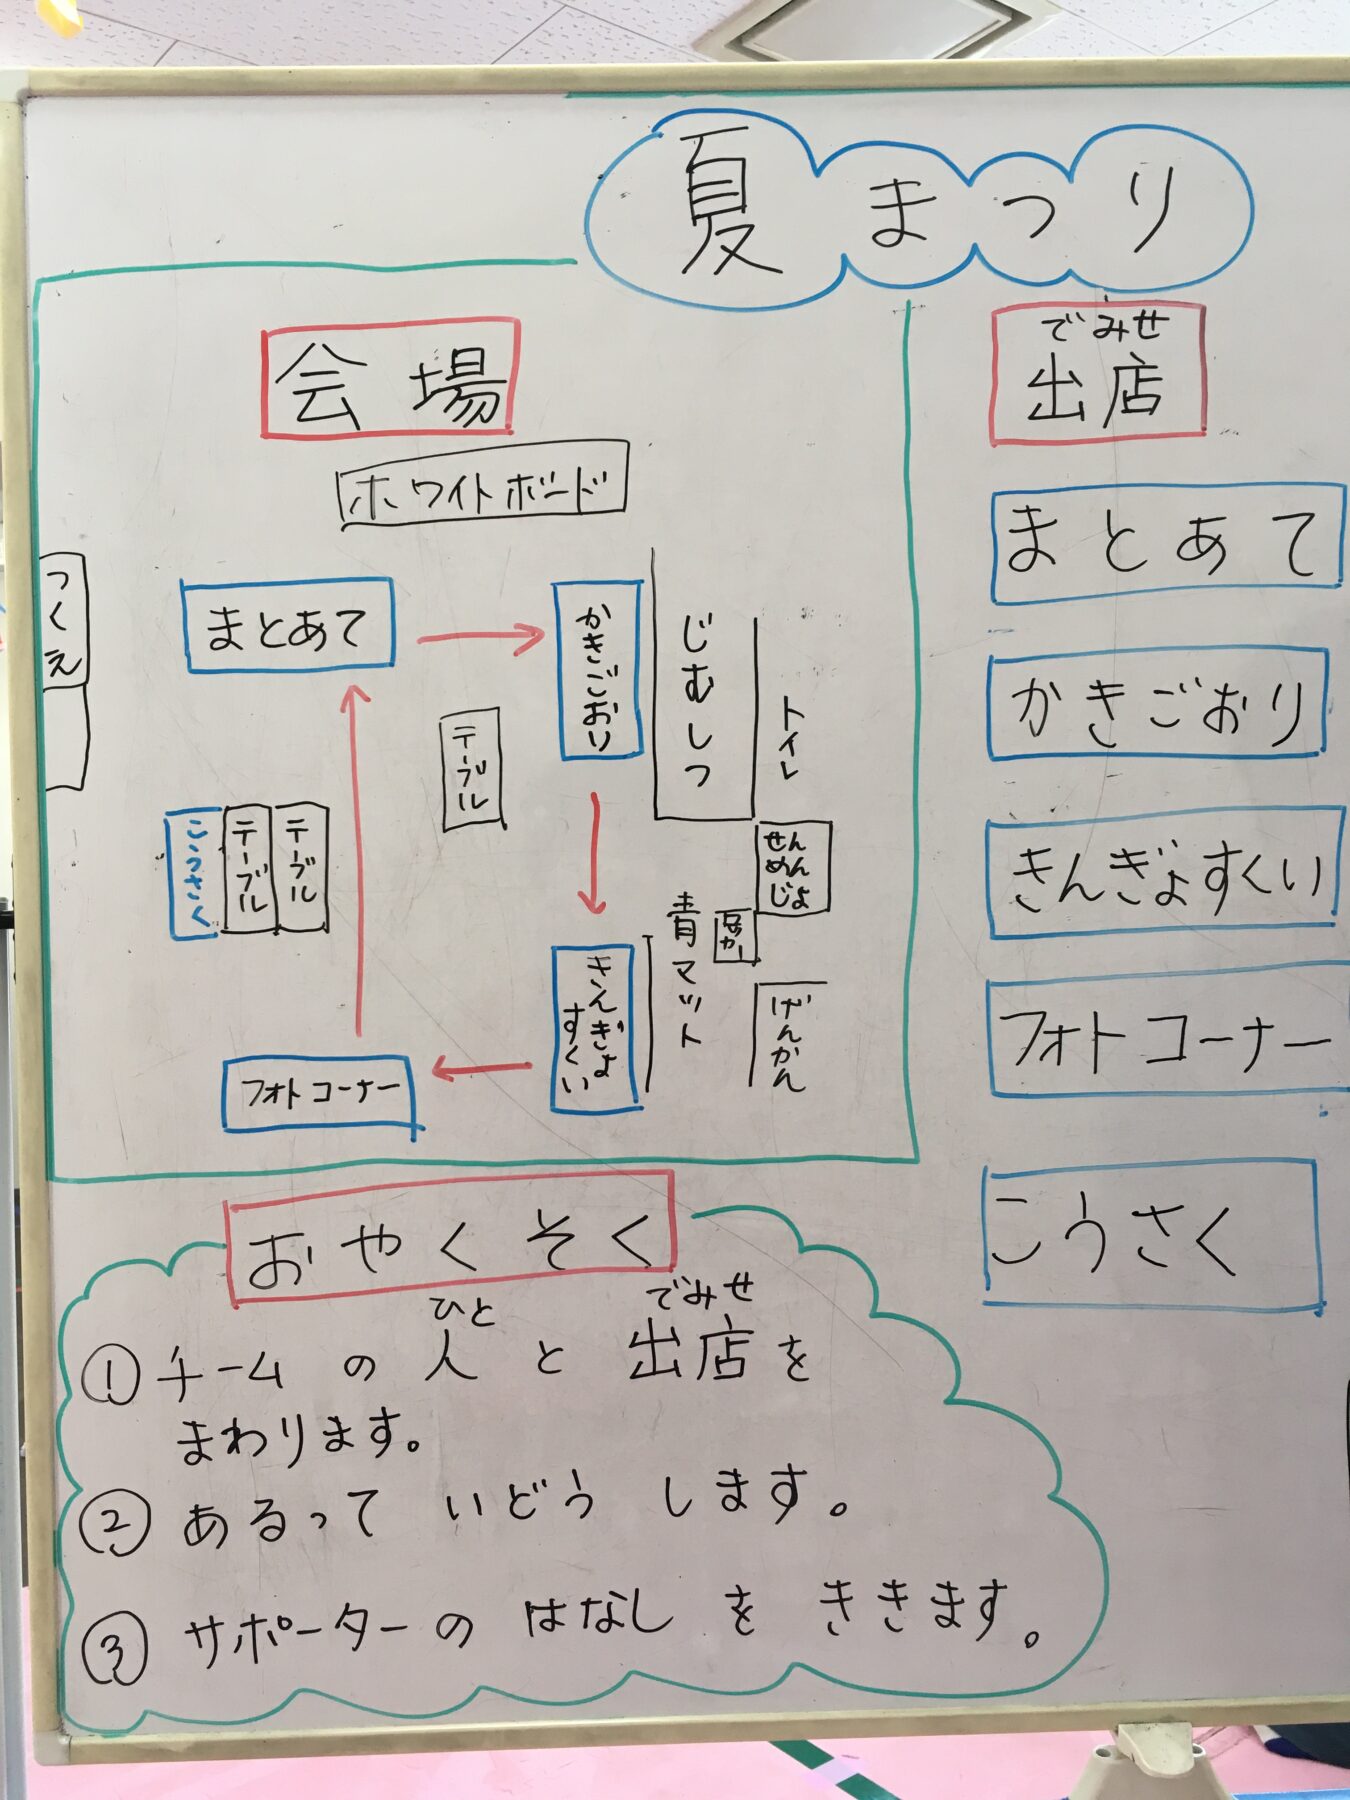 夏まつり
会場
ホワイトボード
つくえ
まとあて
かきごおり
じむしつ
トイレ
テーブル
こうさく
テーブル
テーブル
せんめんじょ
青マット
きんぎょ
すくい
げんかん
フォトコーナー
でみせ
出店
まとあて
かきごおり
きんぎょすくい
フォトコーナー
こうさく
おやくそく
ひと でみせ
①チームの人と出店を
まわります。
②あるって いどう します。
③サポーターの はなし を ききます。